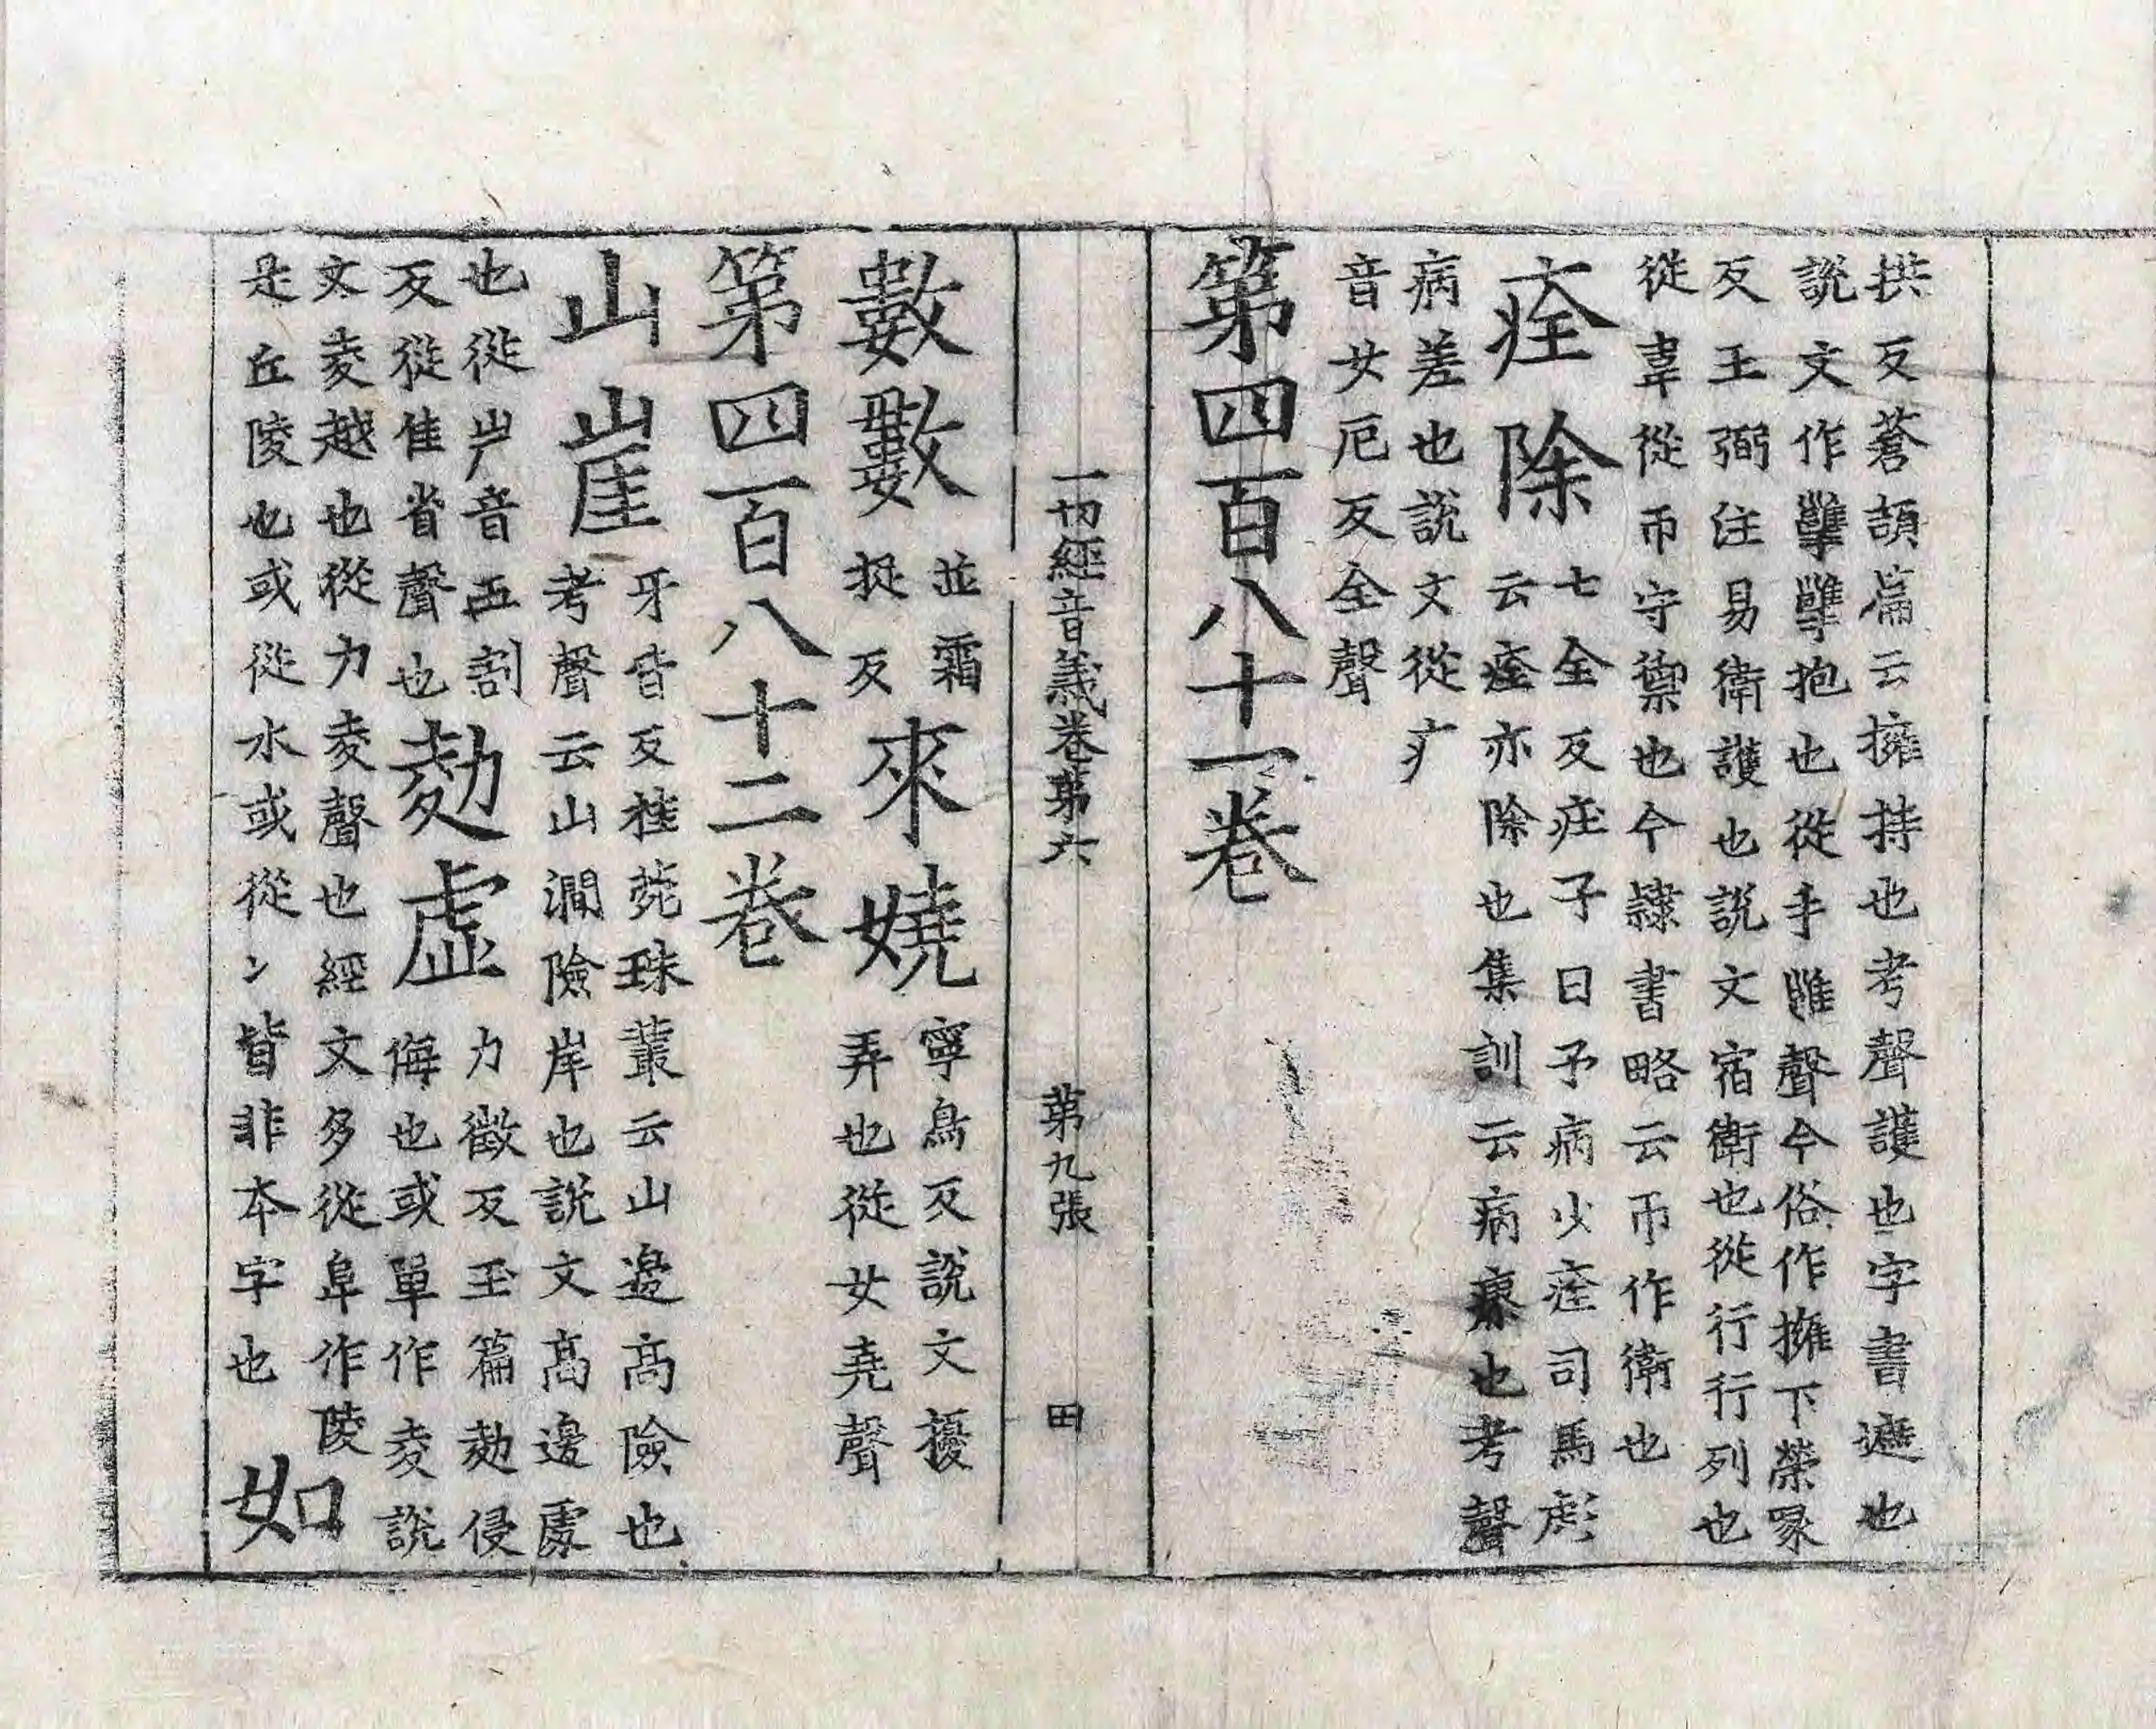 拱反蒼頡篇云擁持也考聲護也字書遮也
說文作㩲抱也從手雝聲今俗作擁下榮
反王弼注易衛護也說文宿衛也從行行列也
從韋從帀守禦也今隸書略云帀作衛也
痊除
七全反痊子曰予病少痊司馬彪
云痊亦除也集訓云病瘳也考聲
病差也說文從疒
音女厄反全聲
第四百八十一卷
一切經音義卷第六 第九張 田
數數
並霜
捉反
來嬈
寧鳥反說文擾
弄也從女堯聲
第四百八十二卷
山崖
牙皆反桂菀珠叢云山邊高險也
考聲云山澗險岸也說文高邊處
也從屵音五割
反從隹省聲也
勊虛
力徵反玉篇勊侵
侮也或單作夌說
文夌越也從力夌聲也經文多從阜作陵
是丘陵也或從水或從冫皆非本字也
如